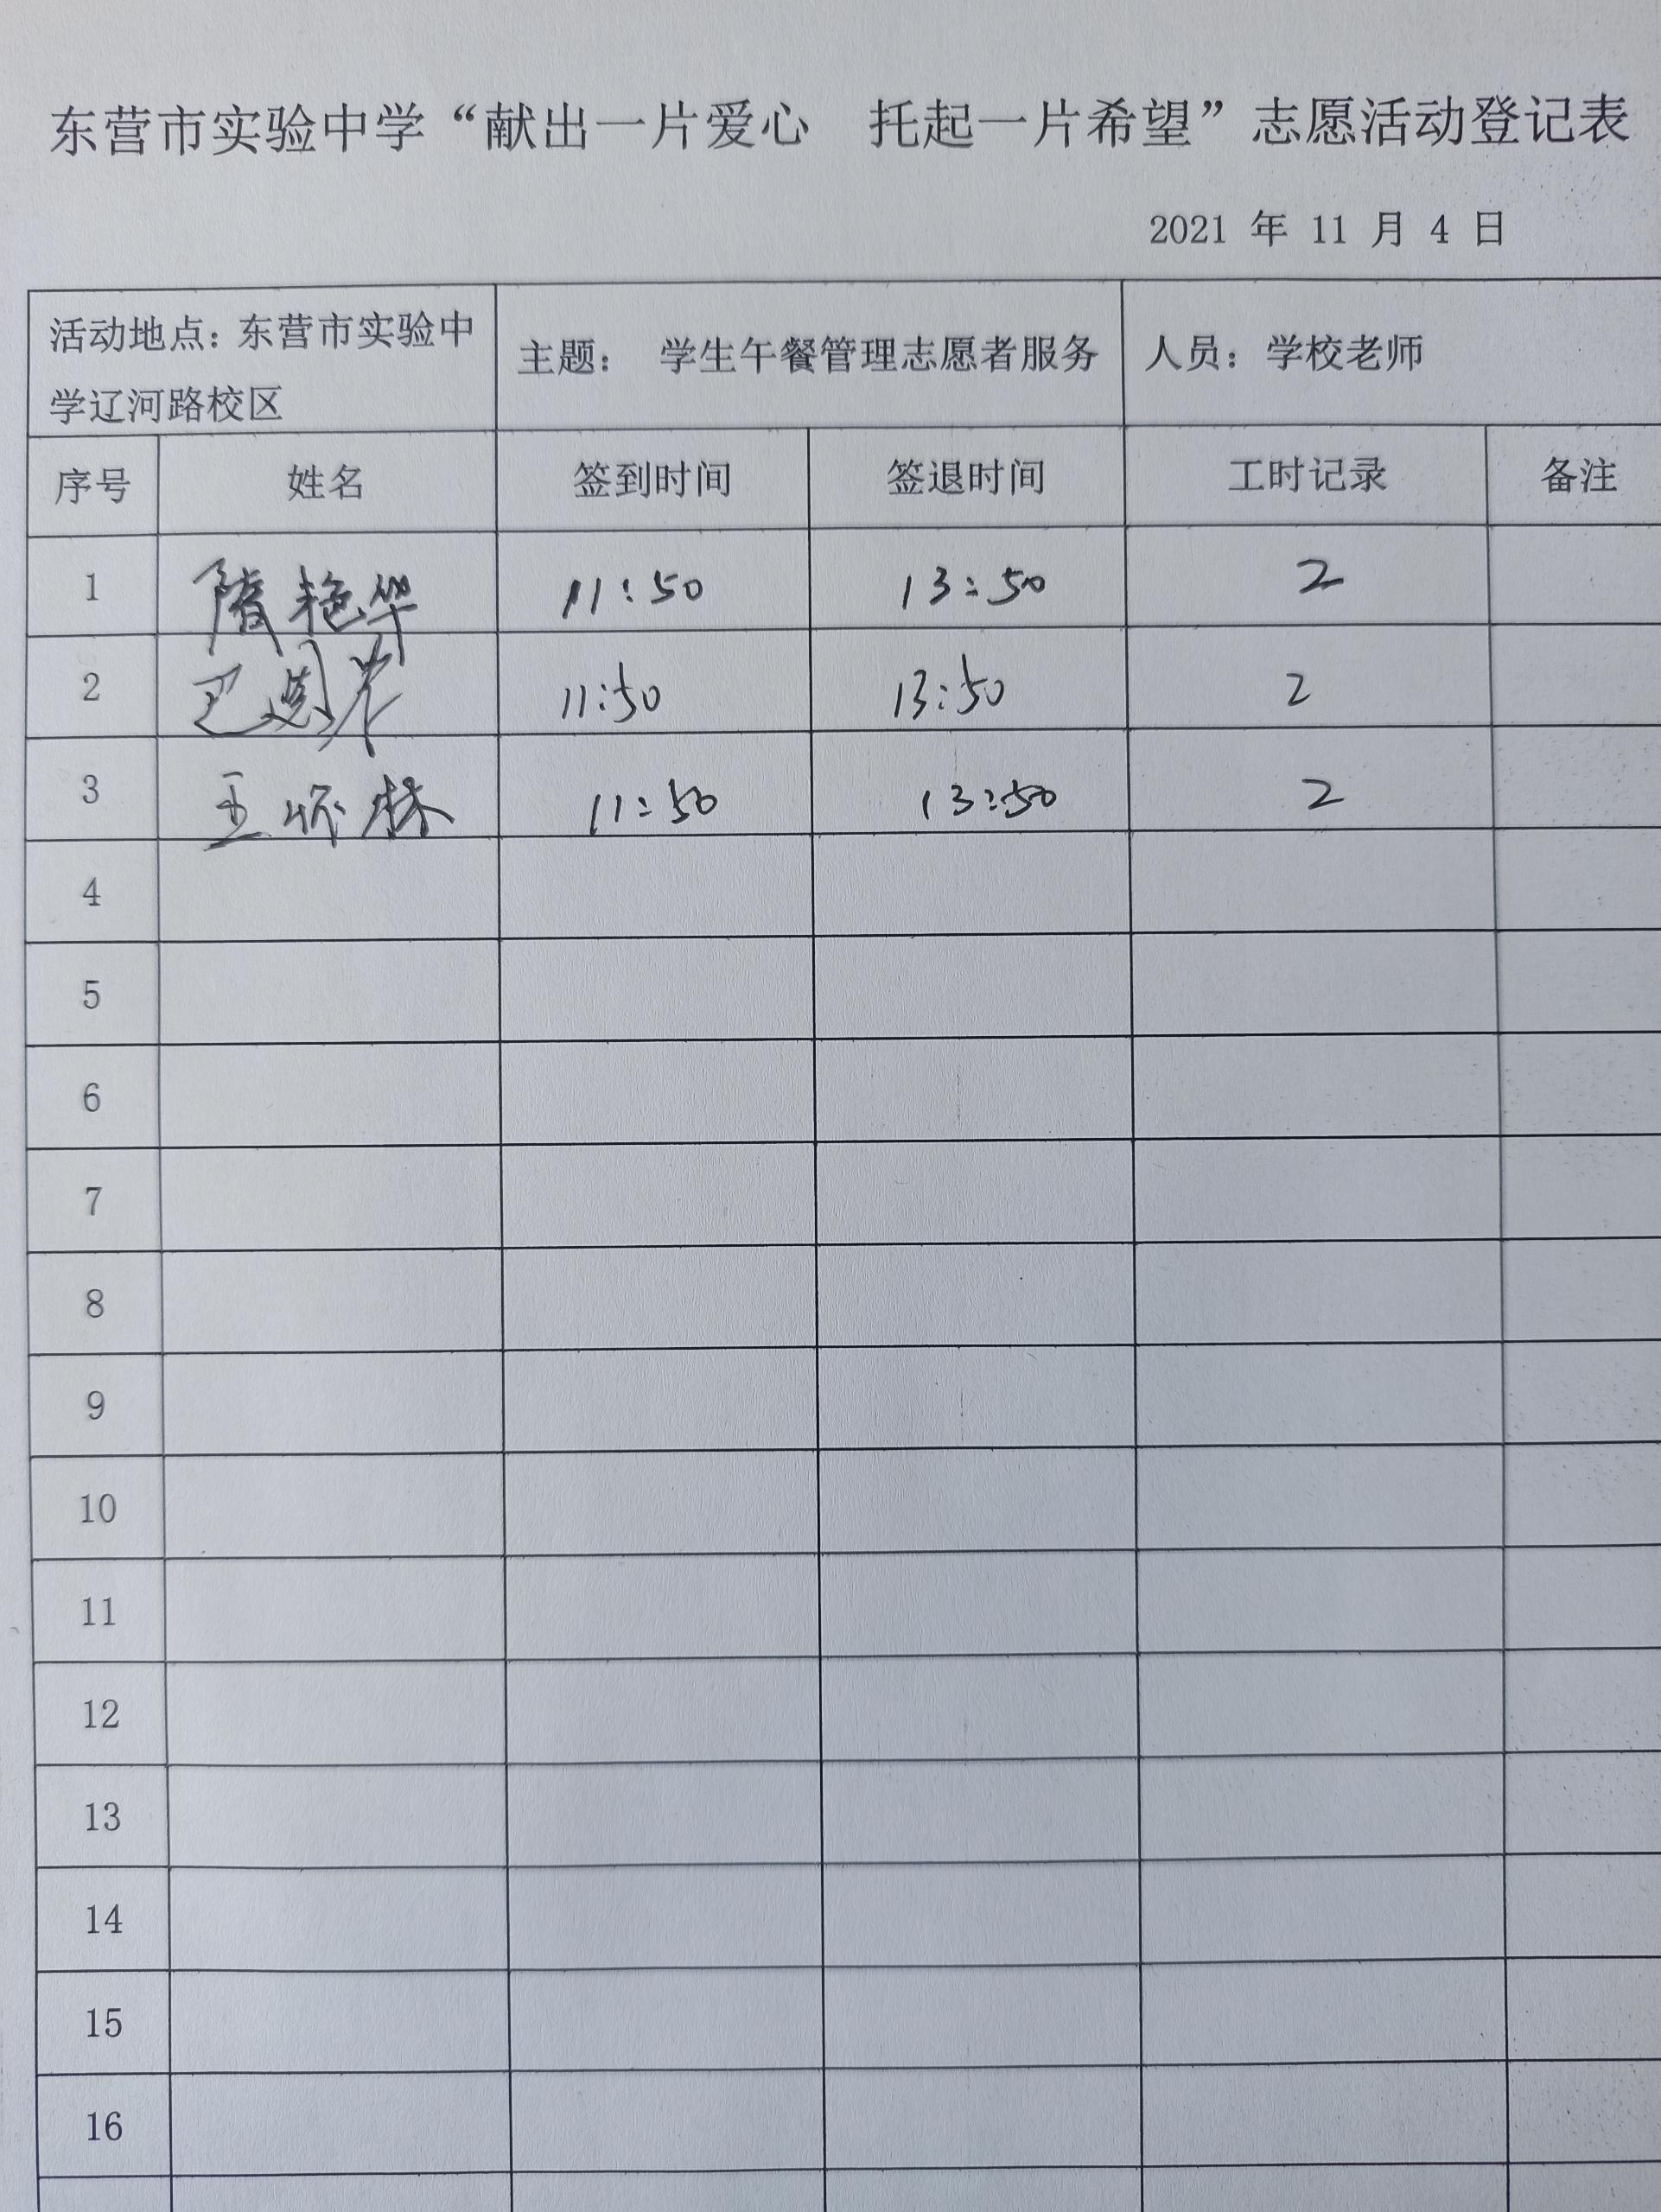 东营市实验中学“献出一片爱心　托起一片希望”志愿活动登记表
2021 年 11 月 4 日
活动地点：东营市实验中
学辽河路校区
主题： 学生午餐管理志愿者服务
人员：学校老师
序号 姓名 签到时间 签退时间 工时记录 备注
1 隋艳华 11:50 13:50 2
2 巴 11:50 13:50 2
3 王怀林 11:50 13:50 2
4
5
6
7
8
9
10
11
12
13
14
15
16